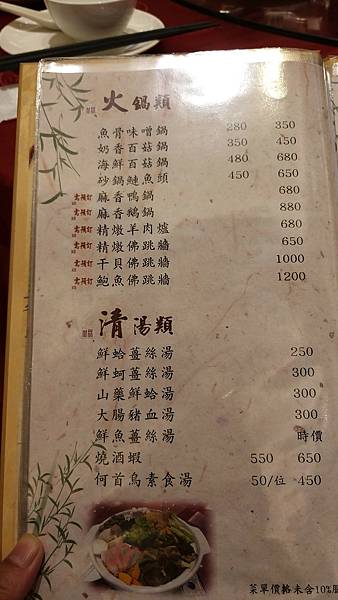 火鍋類
魚骨味噌鍋 280 350
奶香百菇鍋 350 450
海鮮百菇鍋 480 680
砂鍋鰱魚頭 450 650
需預訂 麻香鴨鍋 680
需預訂 麻香鵝鍋 880
需預訂 精燉羊肉爐 680
需預訂 精燉佛跳牆 650
需預訂 干貝佛跳牆 1000
需預訂 鮑魚佛跳牆 1200
清湯類
鮮蛤薑絲湯 250
鮮蚵薑絲湯 300
山藥鮮蛤湯 300
大腸豬血湯 300
鮮魚薑絲湯 時價
燒酒蝦 550 650
何首烏素食湯 50/位 450
菜單價格未含10%服